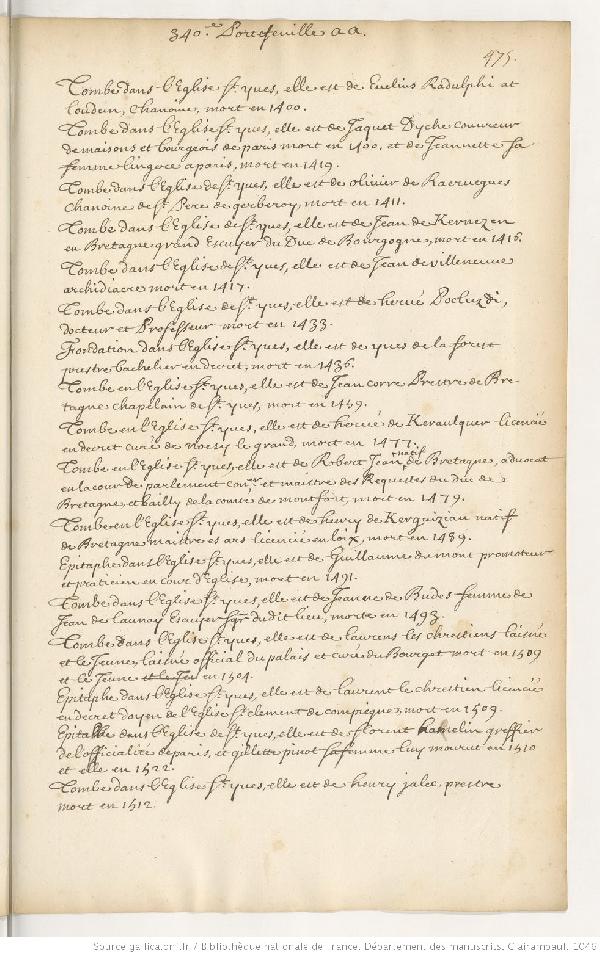 340.e Portefeuille aa.
475.
Tombe dans l'Eglise St. yves, elle est de Euelius Radulphi at
loudein, chanoine, mort en 1400.
Tombe dans l'Eglise St. yves, elle est de Jaquet Dyche couvreur
de maisons et bourgeois de paris mort en 1400. et de Jeannette sa
femme lingere a paris, mort en 1419.
Tombe dans l'Eglise de St. yves, elle est de olivier de Kaeruegues
chanoine de St. Pere de gerberoy, mort en 1411.
Tombe dans l'Eglise de St. yves, elle est de Jean de Kernezen
en Bretagne grand Escuyer du Duc de Bourgogne, mort en 1416.
Tombe dans l'Eglise de St. yves, elle est de Jean de villeneuve
archidiacre mort en 1417.
Tombe dans l'Eglise de St. yves, elle est de hervé
docteur et Professeur mort en 1433.
Fondation dans l'Eglise St. yves, elle est de yves de la forest
prestre bachelier en decret, mort en 1436.
Tombe en l'Eglise St. yves, elle est de Jean corre Prestre de Bre-
tagne chapelain de St. yves, mort en 1459.
Tombe en l'Eglise St. yves, elle est de hervé de Keraulquer licencié
en decret curé de noisy le grand, mort en 1477.
Tombe en l'Eglise St. yves, elle est de Robert Jean natif de Bretagne, advocat
en la cour de parlement coner. et maistre des Requestes du duc de
Bretagne et bailly de la comté de montfort, mort en 1479.
Tombe en l'Eglise St. yves, elle est de henry de Kerguizian natif
de Bretagne maistre es ars licencié en loix, mort en 1489.
Epitaphe dans l'Eglise St. yves, elle est de Guillaume du mont promoteur
et praticien en cour d'Eglise, mort en 1491.
Tombe dans l'Eglise St. yves, elle est de Jeanne de Budes femme de
Jean de launay Escuyer sgr. dudit lieu, morte en 1493.
Tombe dans l'Eglise St. yves, elle est de laurens les chrestiens laisné
et le Jeune, laisné official du palais et curé du Bourget mort en 1509
et le Jeune et le Jeu en 1504.
Epitaphe dans l'Eglise St. yves, elle est de laurent le chrestien licencié
en decret doyen de l'Eglise St. clement de compiegne, mort en 1509.
Epitaphe dans l'Eglise de St. yves, elle est de florent hamelin greffier
de l'officialité de paris, et gillette pinot sa femme luy mourut en 1510
et elle en 1522.
Tombe dans l'Eglise St. yves, elle est de henry jalec, prestre
mort en 1512.
Source gallica.bnf.fr / Bibliothèque nationale de France. Département des manuscrits. Clairambault 1046